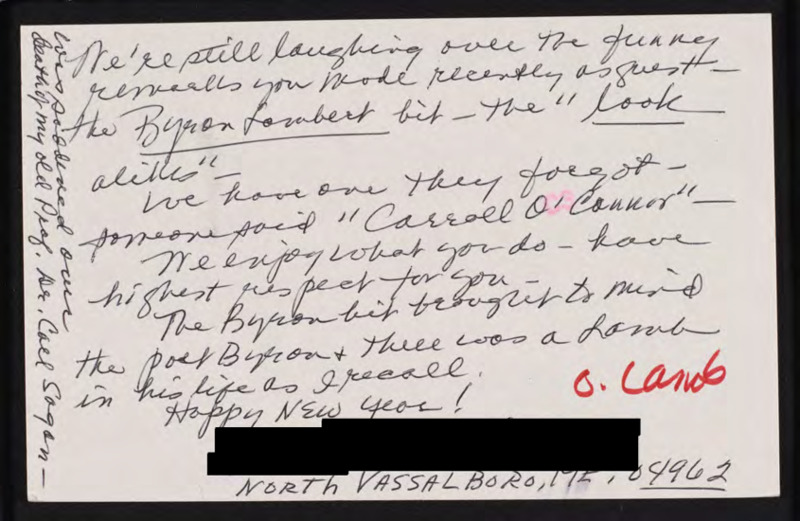 We're still laughing over the funny
remarks you made recently as guest –
the Byron Lambert bit – the "look
alikes" –
We have one they forgot –
someone said "Carroll O'Connor" –
We enjoy what you do – have
highest respect for you –
The Byron bit brought to mind
the poet Byron & there was a Lamb
in his life as I recall.
Happy New Year!
O. Lamb
NORTH VASSALBORO, ME, 04962
Was saddened over
death of my old Prof. Dr. Carl Sagan –